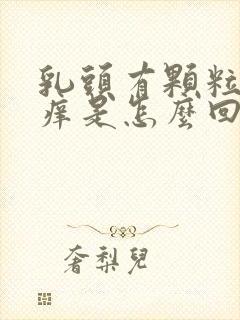 乳頭有顆粒
痒是怎麼回
奢梨兒